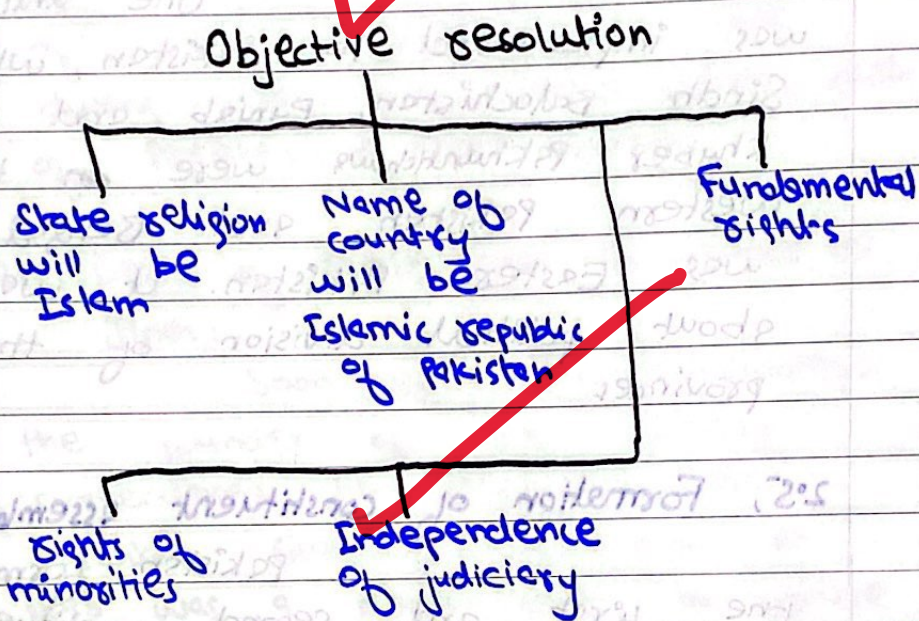 Objective resolution
State religion
will be
Islam
Name of
country
will be
Islamic republic
of Pakistan
Fundamental
rights
rights of
minorities
Independence
of judiciary